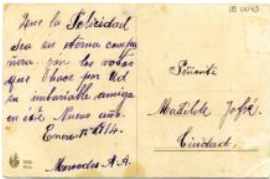 Que la Felicidad
sea su eterna compa
ñera. por los votos
que hace por Ud
su imbariable amiga
en este Nuevo año.
Enero 1º 1914.
Mercedes A. A.
18 0045
Señorita
Matilde José.
Ciudad.